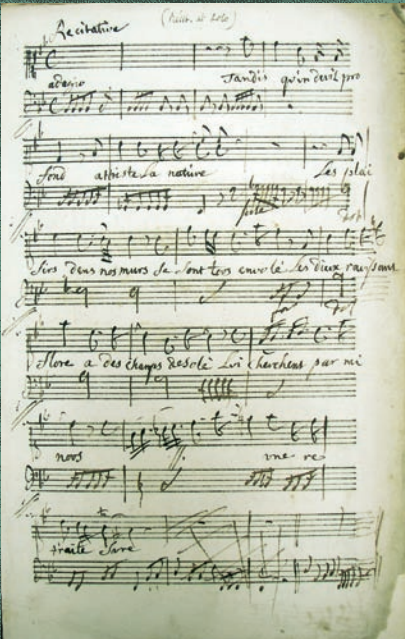 Recitative
adagio Tandis qu'un devil pro
fond attriste La nature Les plai
sirs dans nos murs se sont tovs envolé Les dieux
flore a des champs desolé Lvi cherchent par mi
novs vne re
traite